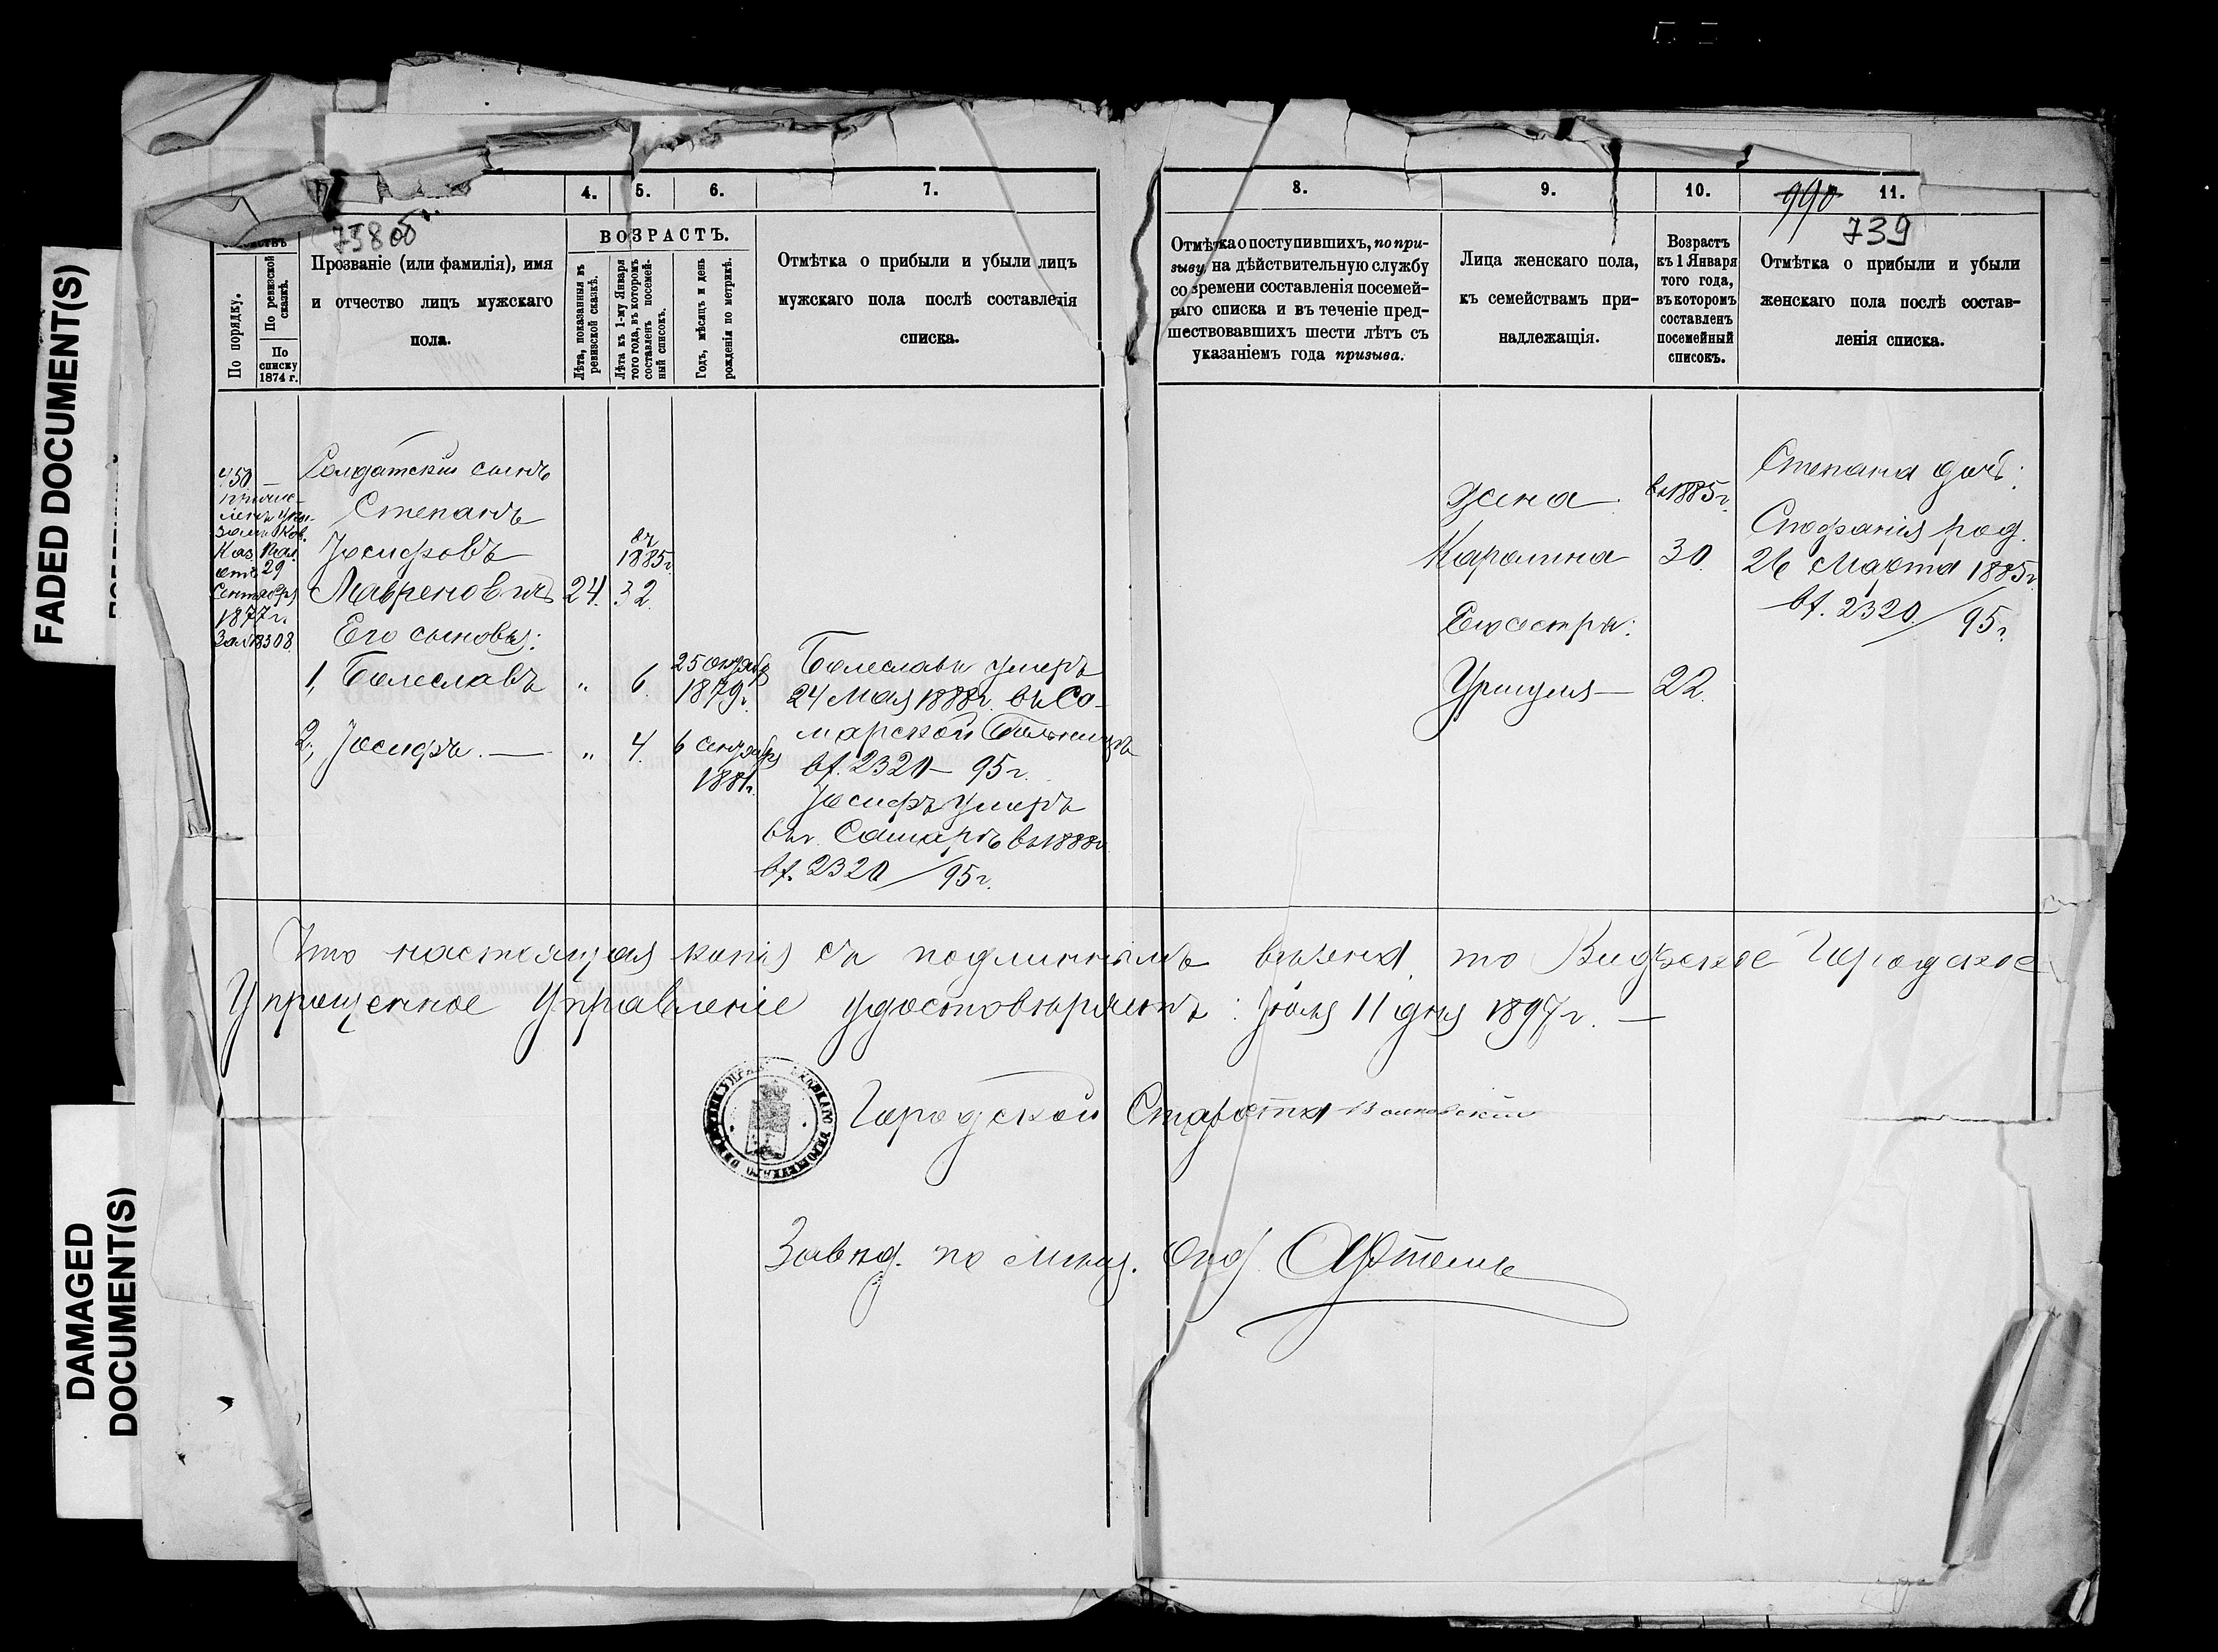 FADED DOCUMENT(S)
DAMAGED
DOCUMENT(S)
4.
5.
6.
7.
8.
9.
10.
11.
990
739
ВОЗРАСТЪ.
По порядку.
По ревизской
сказкѣ.
По
списку
1874 г.
Прозваніе (или фамилія), имя
и отчество лицъ мужскаго
пола.
Лѣта, показанныя въ
ревизской сказкѣ.
Лѣта къ 1-му Января
того года, въ которомъ
составленъ посемей-
ный списокъ.
Годъ, мѣсяцъ и день
рожденія по метрикѣ.
Отмѣтка о прибыли и убыли лицъ
мужскаго пола послѣ составленія
списка.
Отмѣтка о поступившихъ, по при-
зыву на дѣйствительную службу
со времени составленія посемей-
наго списка и въ теченіе пред-
шествовавшихъ шести лѣтъ съ
указаніемъ года призыва.
Лица женскаго пола,
къ семействамъ при-
надлежащія.
Возрастъ
къ 1 Января
того года,
въ которомъ
составленъ
посемейный
списокъ.
Отмѣтка о прибыли и убыли
женскаго пола послѣ состав-
ленія списка.
450 —
причис-
ленъ ука-
зомъ Ков.
Каз. Пал.
отъ 29
Сентября
1877 г.
за № 8308.
Солдатскій сынъ
Степанъ
Іосифовъ
Лавреновичъ 24. 32.
въ
1885 г.
Его сыновья:
1, Болеславъ " 6. 25 октября
1879 г.
2, Іосифъ. — " 4. 6 Сентября
1881 г.
Болеславъ умеръ
24 Мая 1888 г. въ Са-
марской Больницѣ
вх. 2320 — 95 г.
Іосифъ умеръ
въ г. Самарѣ въ 1888 г.
вх. 2320 / 95 г.
Жена въ 1885 г.
Каролина 30.
Его сестра:
Уршуля — 22.
Степана дочь:
Стефанія род.
26 Марта 1885 г.
вх. 2320 / 95 г.
Что настоящая копія съ подлиннымъ вѣрна, то Видзское Городское
Упрощенное Управленіе удостовѣряетъ: Іюля 11 дня 1897 г. —
Городской Староста
Завѣд. по мѣщ. Отд.